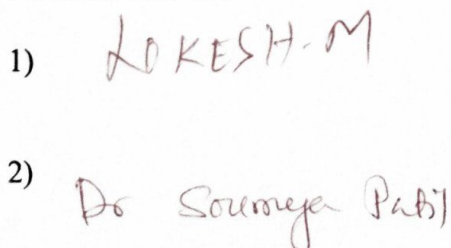 1) LOKESH. M
2) Dr Soumya Patil